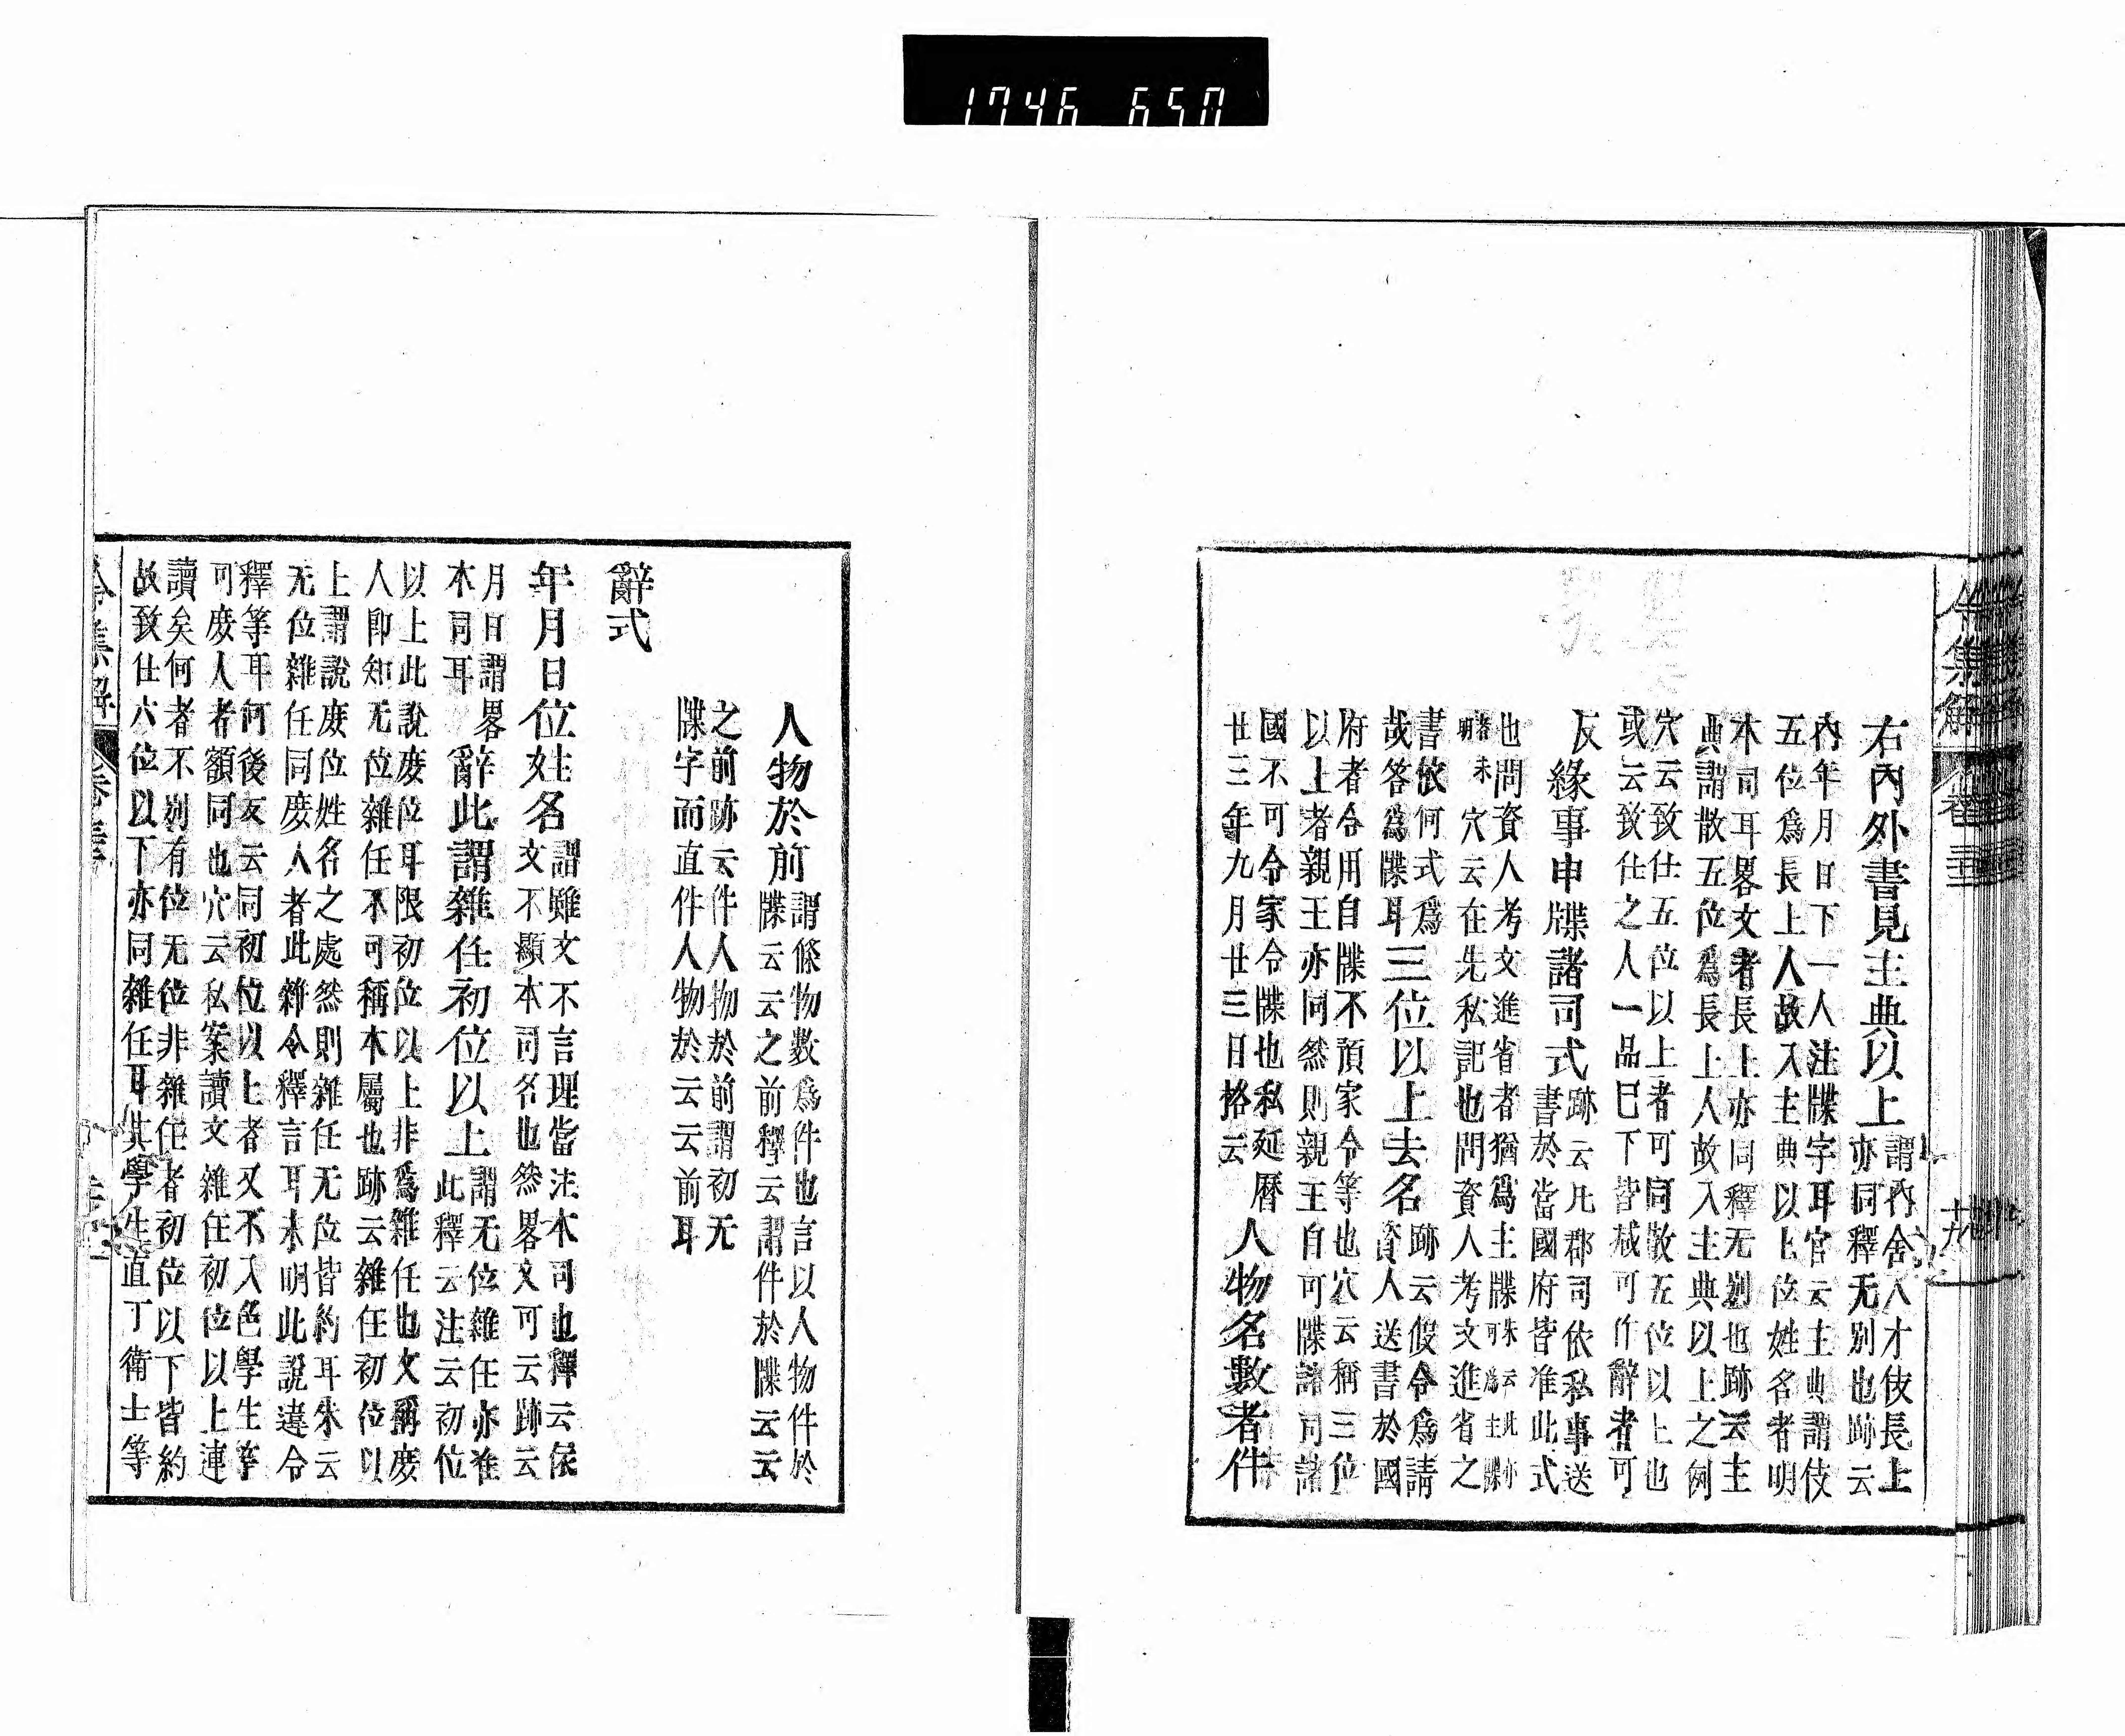 1746 650
令集解
卷三三
十九
右內外書見主典以上
謂內舍人才伎長上
亦同釋无別也跡云
內年月日下一人注牒字耳官云主典謂伎
五位爲長上人故入主典以上位姓名者明
本司耳畧文者長上亦同釋无別也跡云主
典謂散五位爲長上人故入主典以上之例
穴云致仕五位以上者可同散五位以上也
或云致仕之人一品已下皆尅可作辭者可
反緣事申牒諸司式
跡云凡郡司依私事送
書於當國府皆准此式
也問資人考文進省者猶爲主牒
朱云此亦
可爲主牒
者未
明
穴云在先私記也問資人考文進省之
書依何式爲
哉答爲牒耳
三位以上去名
跡云假令爲請
資人送書於國
府者令用自牒不預家令等也穴云稱三位
以上者親王亦同然則親王自可牒諸司諸
國不可令家令牒也私延曆
廿三年九月廿三日格云
人物名數者件
人物於前
謂條物數爲件也言以人物件於
牒云云之前釋云謂件於牒云云
之前跡云件人物於前謂初无
牒字而直件人物於云云前耳
辭式
年月日位姓名
謂雖文不言理當注本司也釋云俟
文不顯本司名也然畧文可云跡云
月日謂畧
本同耳
辭此謂雜任初位以上
謂无位雜任亦准
此釋云注云初位
以上此說庶位耳限初位以上非爲雜任也文稱庶
人卽知无位雜任不可稱本屬也跡云雜任初位以
上謂說庶位姓名之處然則雜任无位皆約耳朱云
无位雜任同庶人者此辭令釋言耳未明此說違令
釋等耳何後反云同初位以上者又不入色學生等
可庶人者額同也穴云私案讀文雜任初位以上連
讀矣何者不別有位无位非雜任者初位以下皆約
故致仕六位以下亦同雜任耳其學生直丁衛士等
令集解
卷三